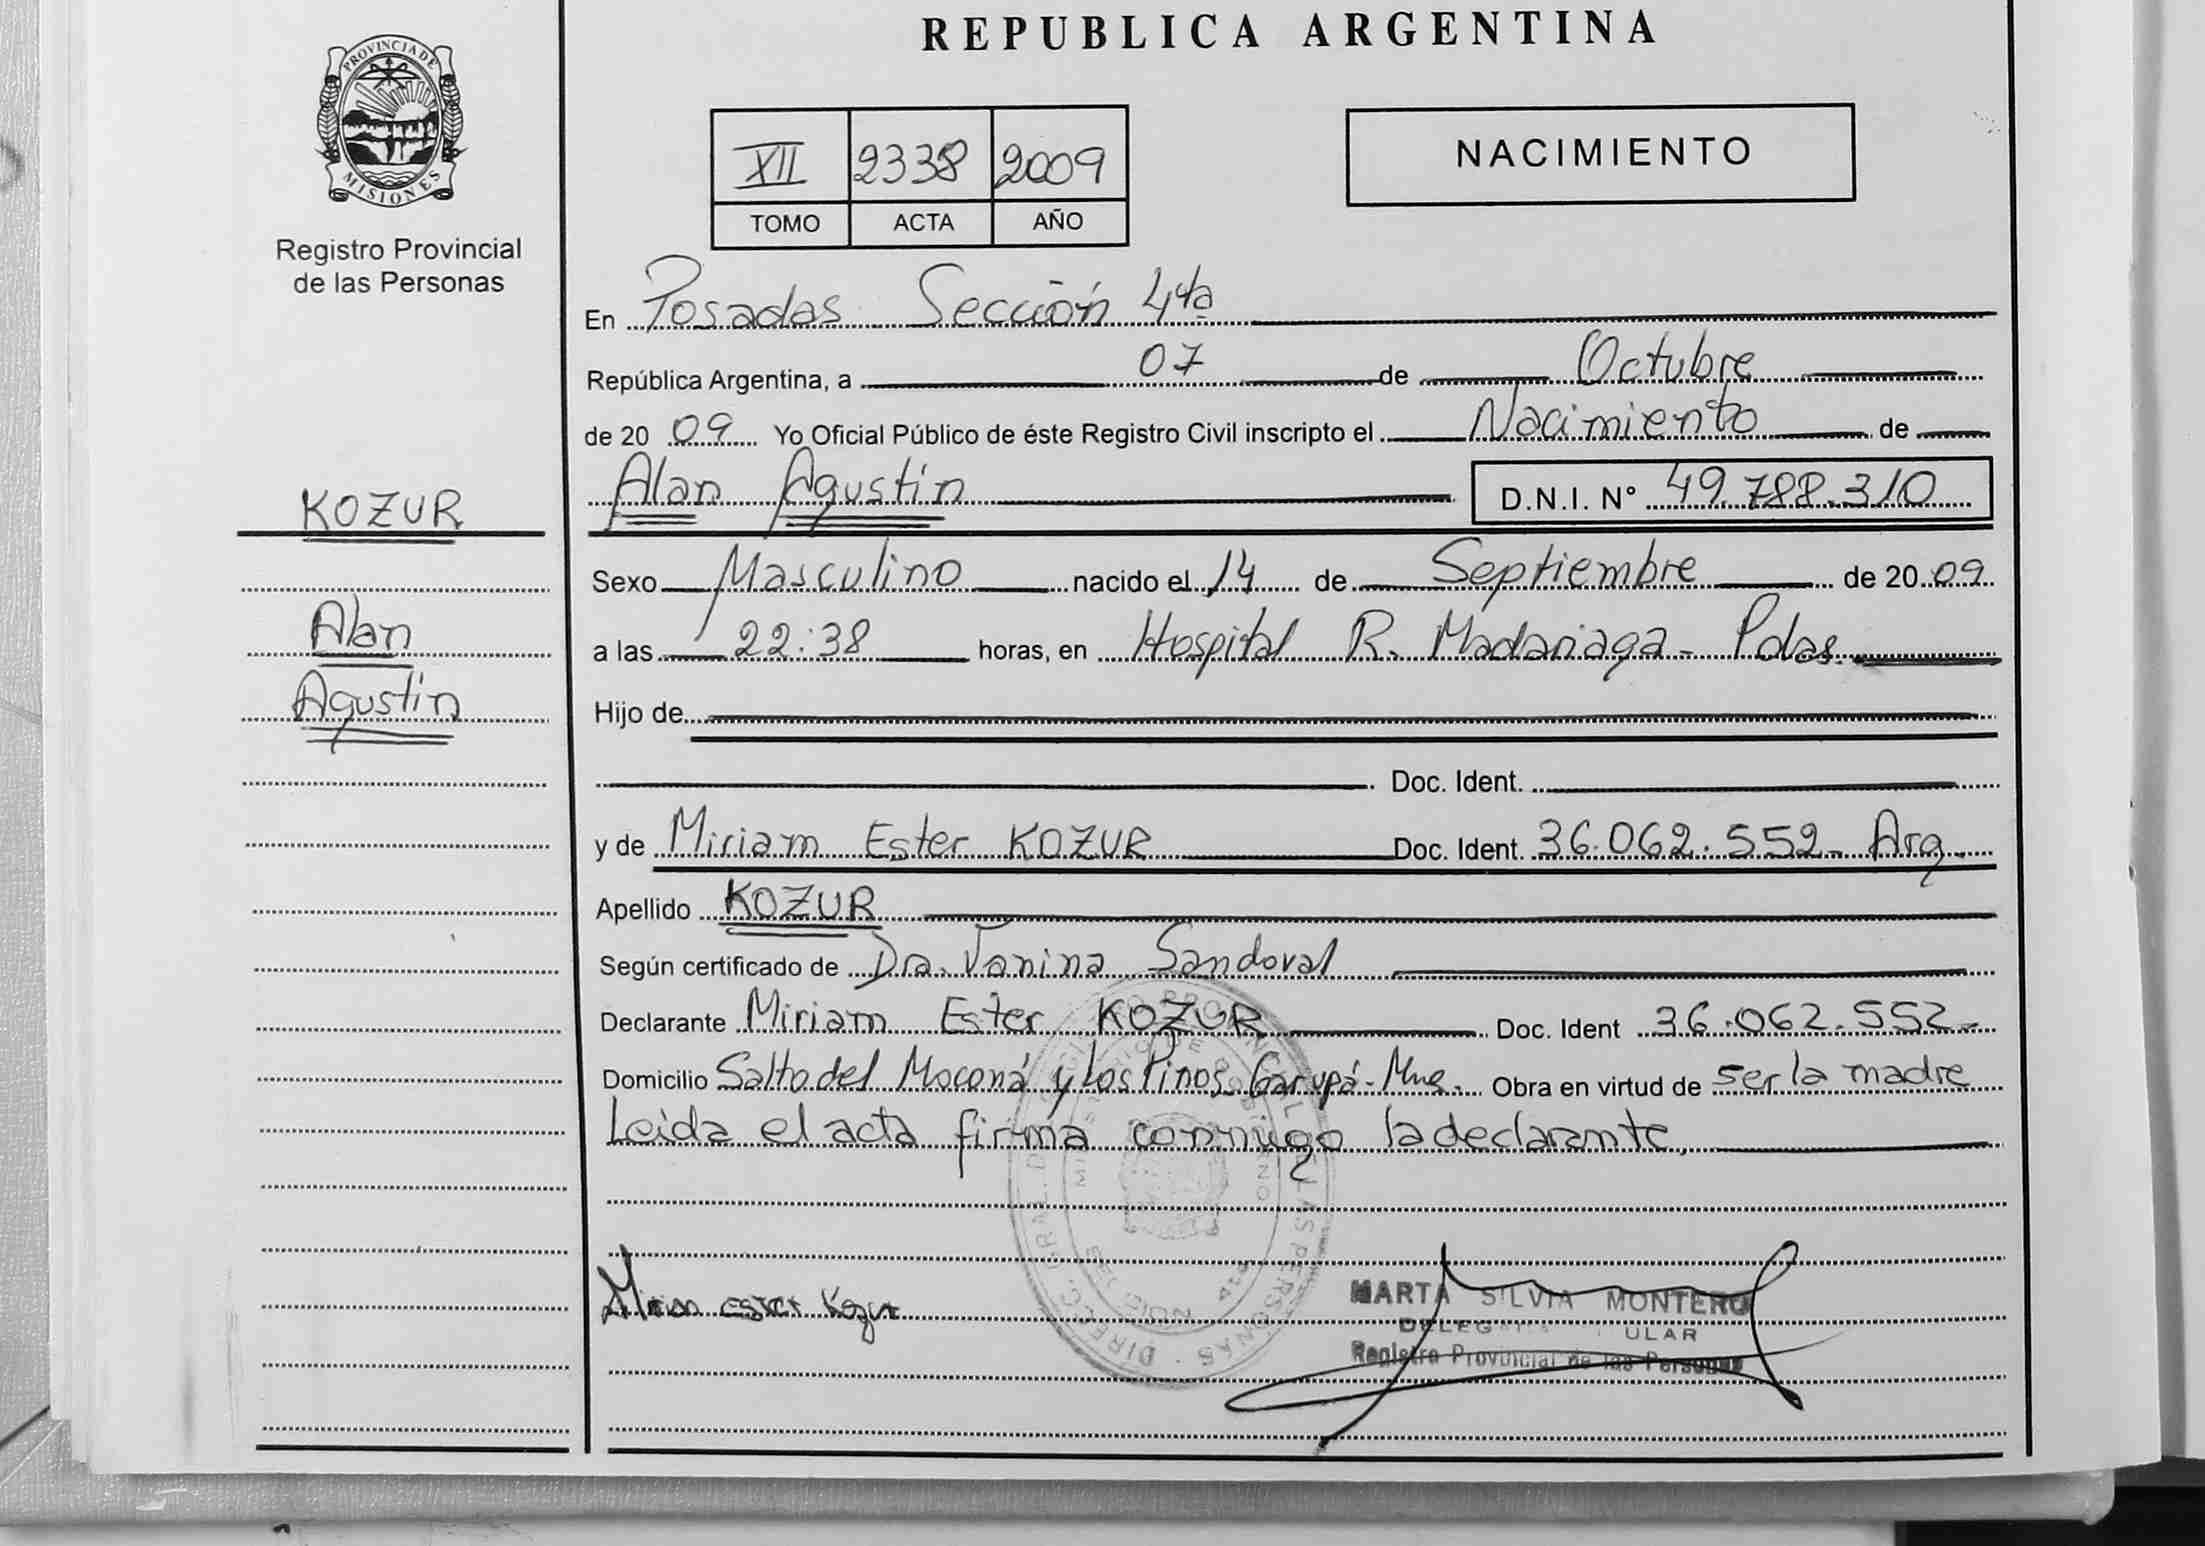 REPUBLICA ARGENTINA
PROVINCIA DE MISIONES
Registro Provincial
de las Personas
XII 2338 2009
TOMO ACTA AÑO
NACIMIENTO
En Posadas Sección 4ta
República Argentina, a 07 de Octubre
de 2009 Yo Oficial Público de éste Registro Civil inscripto el Nacimiento de
Alan Agustin D.N.I. N° 49.788.310
KOZUR
Alan
Agustin
Sexo Masculino nacido el 14 de Septiembre de 2009
a las 22:38 horas, en Hospital R. Madariaga - Pdas.
Hijo de
Doc. Ident.
y de Miriam Ester KOZUR Doc. Ident. 36.062.552- Arg.
Apellido KOZUR
Según certificado de Dra. Vanina Sandoval
Declarante Miriam Ester KOZUR Doc. Ident 36.062.552-
Domicilio Salto del Moconá y Los Pinos Garupá - Mnes. Obra en virtud de ser la madre
Leida el acta firma conmigo la declarante.
Miriam Ester Kozur
MARTA SILVIA MONTERO
Registro Provincial de las Personas